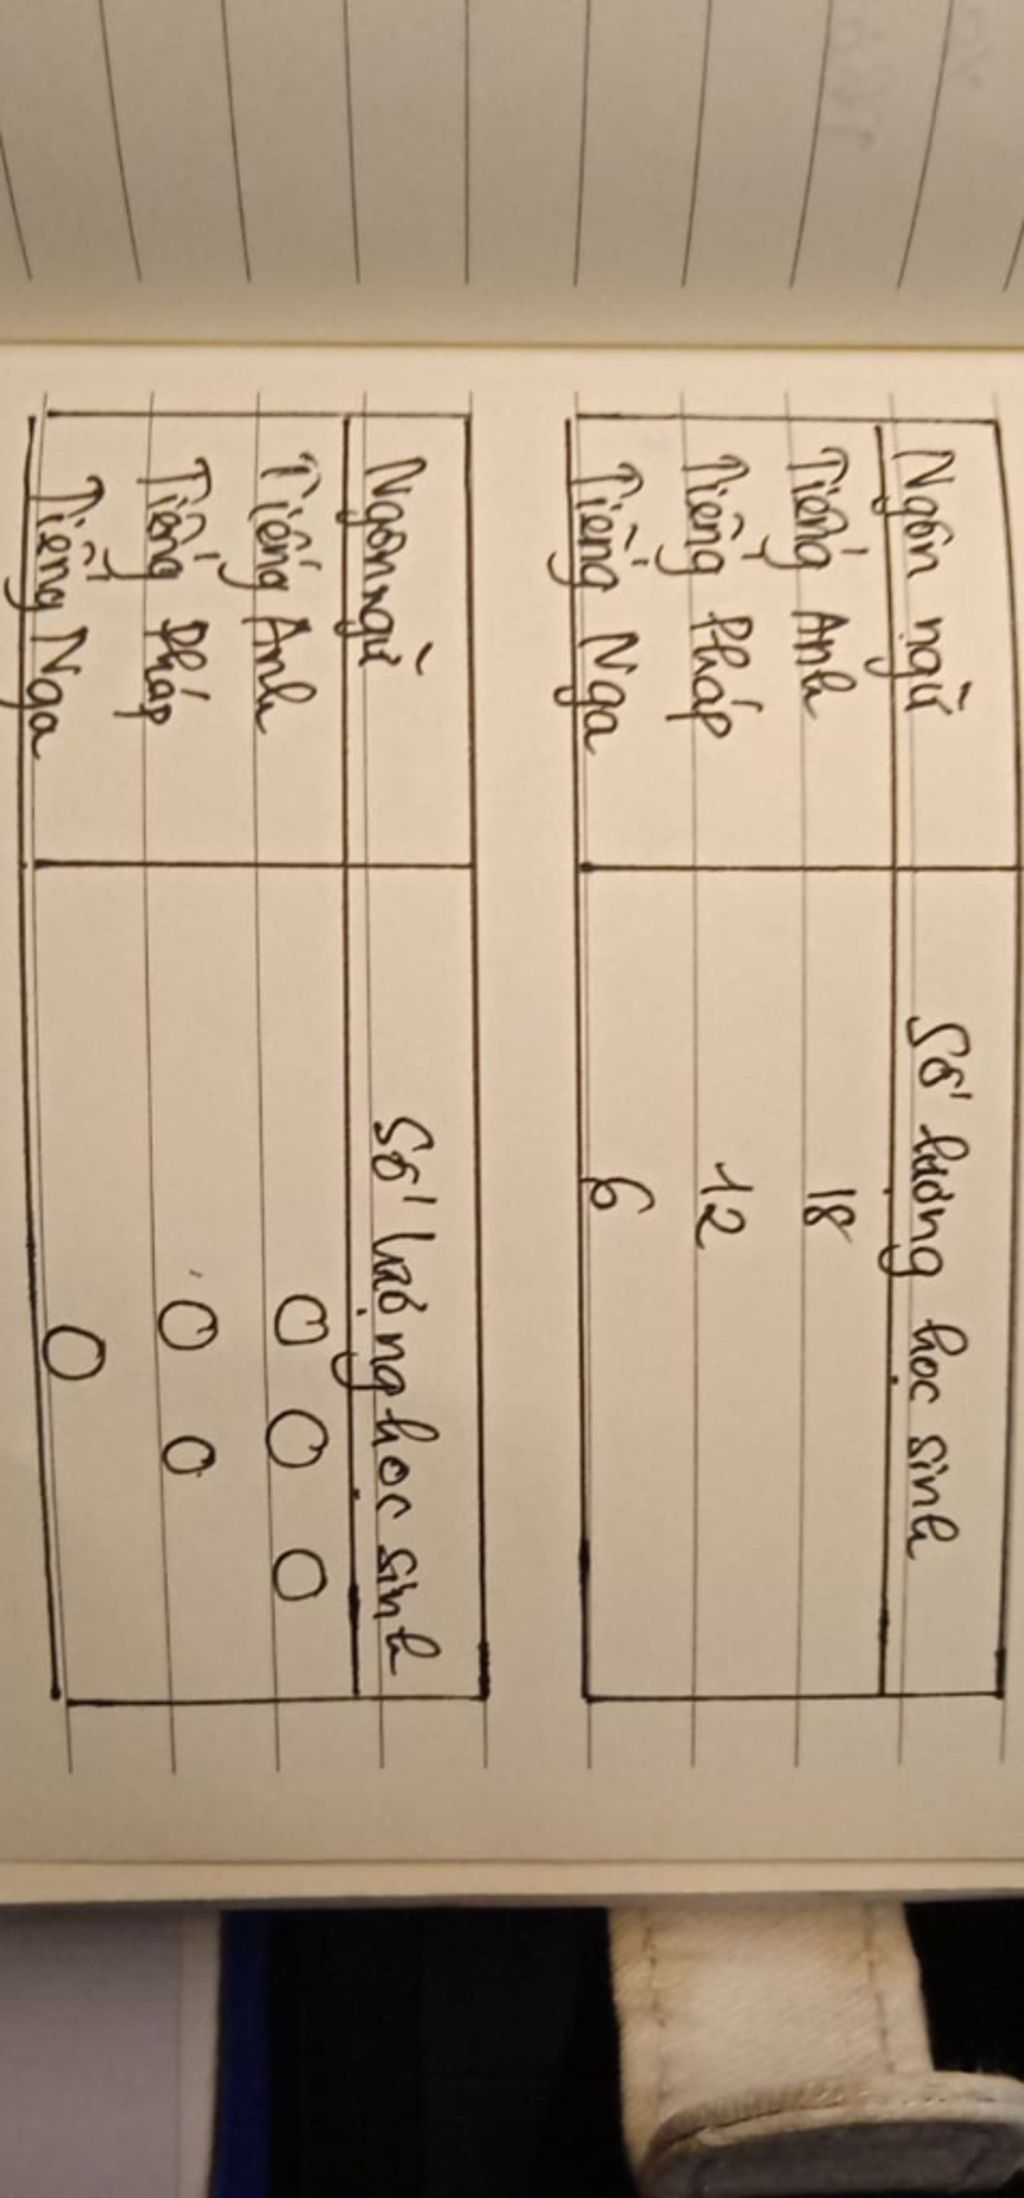 Ngôn ngữ Số lượng học sinh
Tiếng Anh 18
Tiếng Pháp 12
Tiếng Nga 6
Ngôn ngữ Số lượng học sinh
Tiếng Anh O O O
Tiếng Pháp O O
Tiếng Nga O